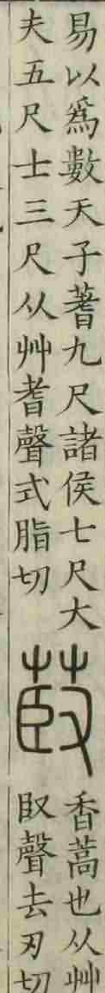 易以爲數天子蓍九尺諸侯七尺大
夫五尺士三尺从艸耆聲式脂切
菣
香蒿也从艸
臤聲去刃切